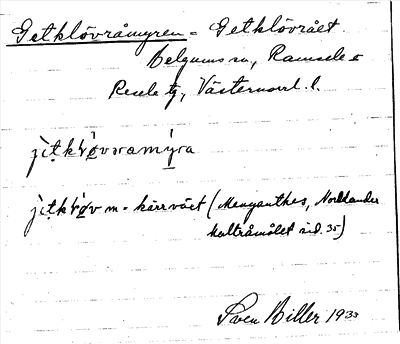 Getklövråmyren = Getklövrået.
Helgums sn, Ramsele o
Resele tg, Västernorrl. l.
jìtkɬøvramýra
jìtkɬøv m = kärrväxt (Menyanthes, Nordlander
Multråmålet sid. 35)
Sven Hiller 1933